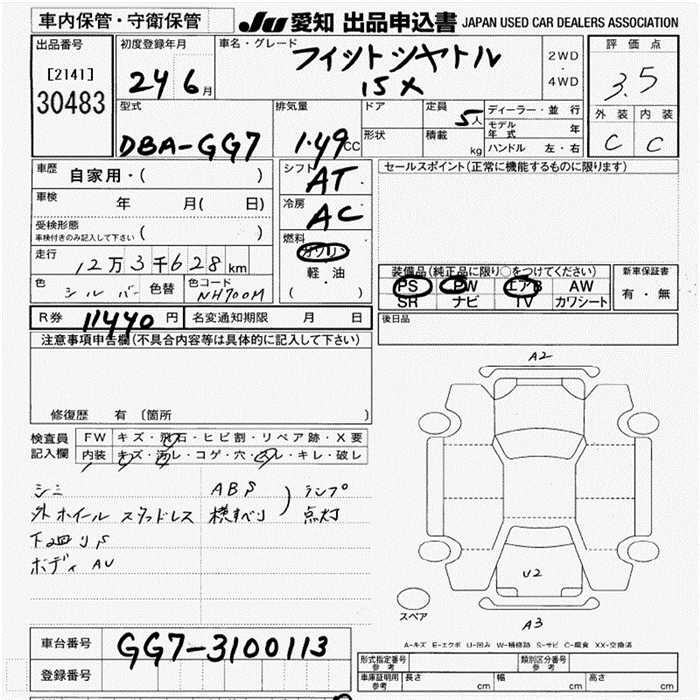 車内保管・守衛保管
JU 愛知 出品申込書 JAPAN USED CAR DEALERS ASSOCIATION
出品番号
[2141]
30483
初度登録年月
24 6月
車名・グレード
フィットシャトル
15X
2WD
・
4WD
評価点
3.5
外装 内装
C C
型式
DBA-GG7
排気量
1.49CC
ドア
形状
定員
5人
積載
kg
ディーラー・並行
モデル年式 年
ハンドル 左・右
車歴
自家用・( )
シフト
AT
車検
年 月( 日)
冷房
AC
受検形態
車検付きのみ記入して下さい ( )
燃料
ガソリン
軽・油
( )
走行
12万3千628km
色
シルバー
色替
色コード
NH700M
R券 11440円
名変通知期限 月 日
セールスポイント(正常に機能するものに限ります)
装備品(純正品に限り○をつけてください)
PS PW エアB AW
SR ナビ TV カワシート
新車保証書
有・無
後日品
注意事項申告欄(不具合内容等は具体的に記入して下さい)
修復歴 有 〔箇所 〕
検査員
記入欄
FW キズ・飛石・ヒビ割・リペア跡・X要
内装 キズ・汚レ・コゲ・穴・スレ・キレ・破レ
シミ ABS ランプ
外ホイール スタッドレス 横すべり 点灯
下回りS
ボディ AU
A2
U2
スペア
A3
A-キズ E-エクボ U-凹み W-補修跡 S-サビ C-腐食 XX-交換済
車台番号 GG7-3100113
登録番号
形式指定番号
参考
類別区分番号
参考
車庫証明用
参考
長さ cm 幅 cm 高さ cm